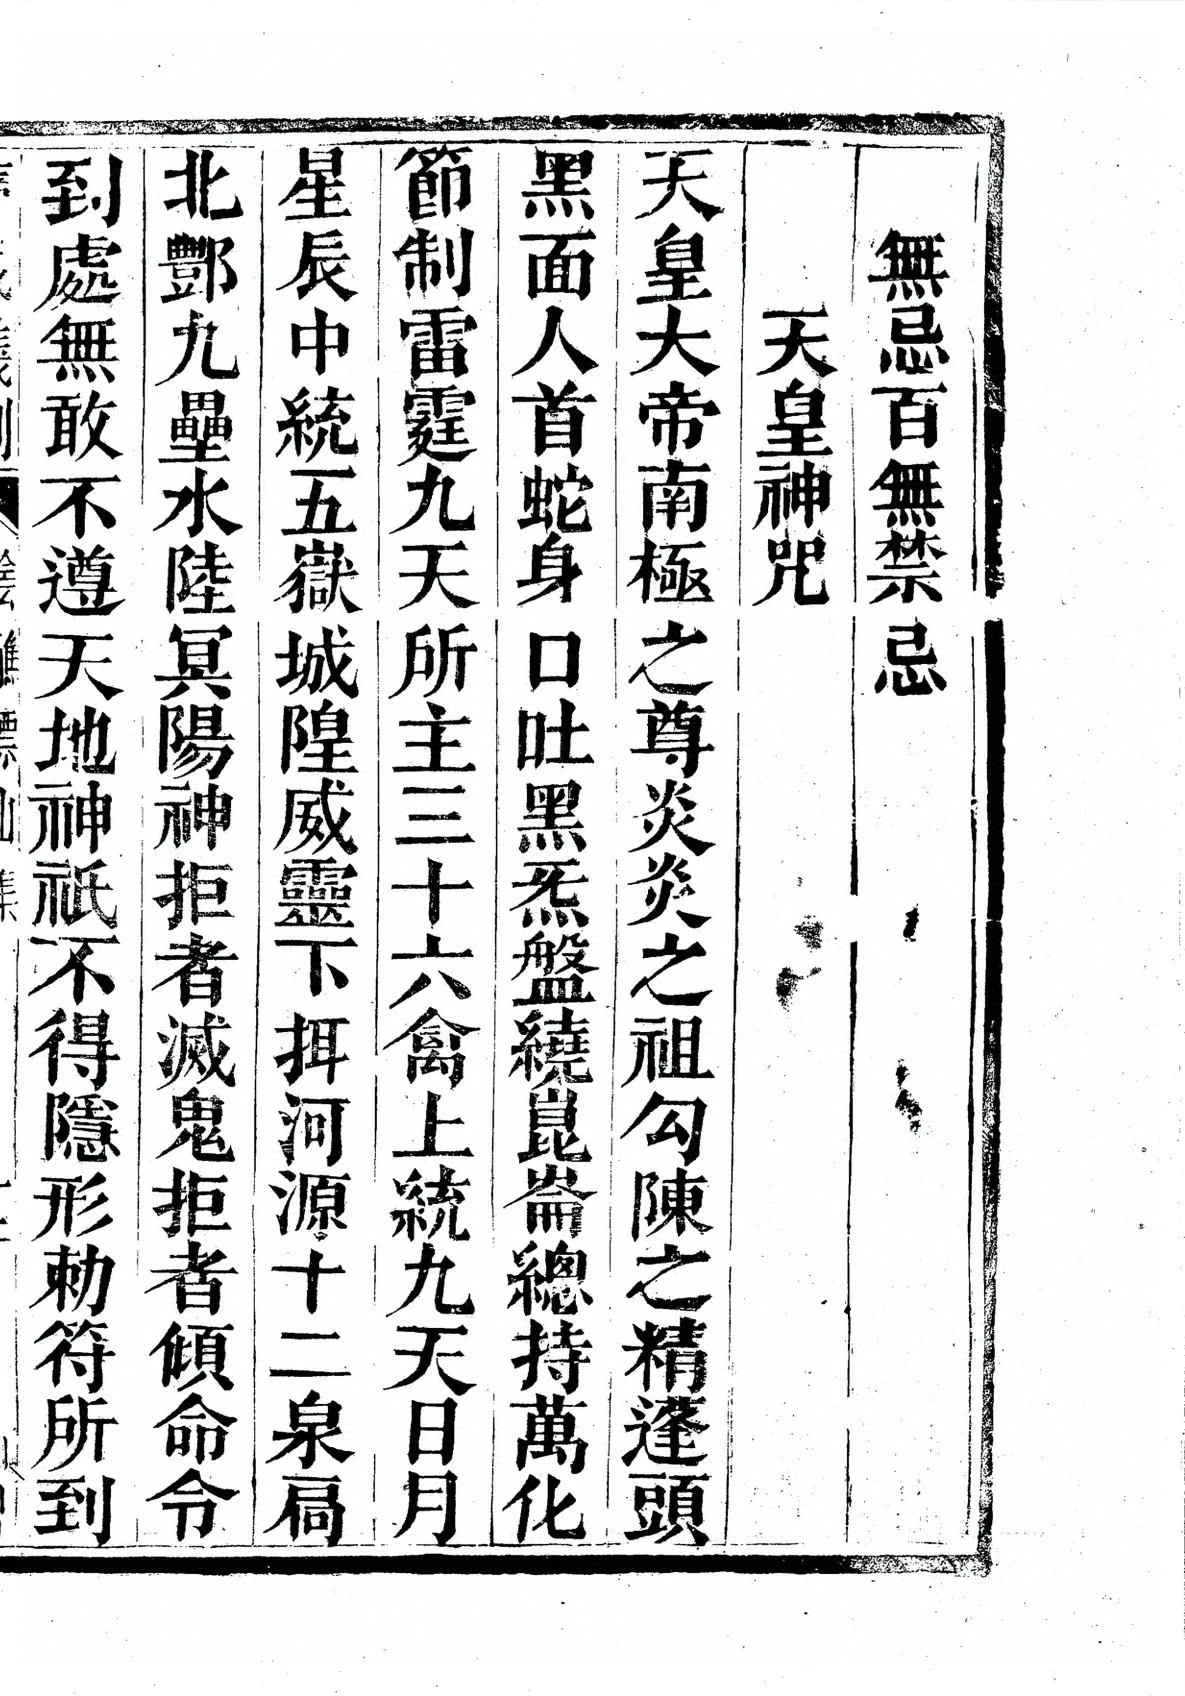 無忌百無禁忌
天皇神咒
天皇大帝南極之尊炎炎之祖勾陳之精蓬頭
黑面人首蛇身口吐黑炁盤繞崑崙總持萬化
節制雷霆九天所主三十六禽上統九天日月
星辰中統五嶽城隍威靈下揖河源十二泉扃
北酆九壘水陸冥陽神拒者滅鬼拒者傾命令
到處無敢不遵天地神祇不得隱形勅符所到